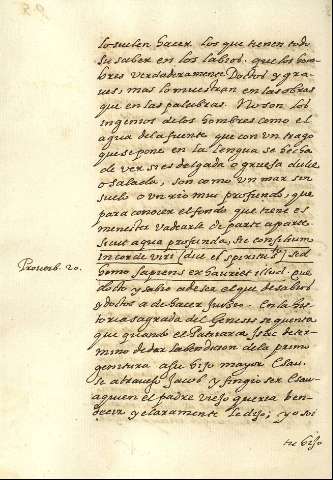 lo suelen hacer los que tienen todo
su saber en los labios. que los hom-
bres verdaderamente Doctos y gra-
ues, mas lo muestran en las obras
que en las palabras. No son los
ingenios de los hombres como el
agua de la fuente que con un trago
que se pone en la lengua se hecha
de ver si es delgada o gruesa dulce
o salada, son como un mar sin
suelo o un rio muy profundo, que
para conocer el fondo que tiene es
menester vadearle de parte a parte.
Sicut aqua profunda, sic consilium
in corde viri (dice el spiritu Sto) sed
Proverb. 20.
homo sapiens exhauriet illud. que
docto y sabio a de ser el que de sabios
y doctos a de hacer juicio. En la his-
toria sagrada del Genesis se quenta
que quando el Patriarca Isac deter-
mino de dar la bendicion de la primo
genitura a su hijo mayor Esau.
se atrauesso Jacob y fingio ser Esau
a quien el padre viejo queria ben-
decir y claramente le dijo, yo soi
tu hijo